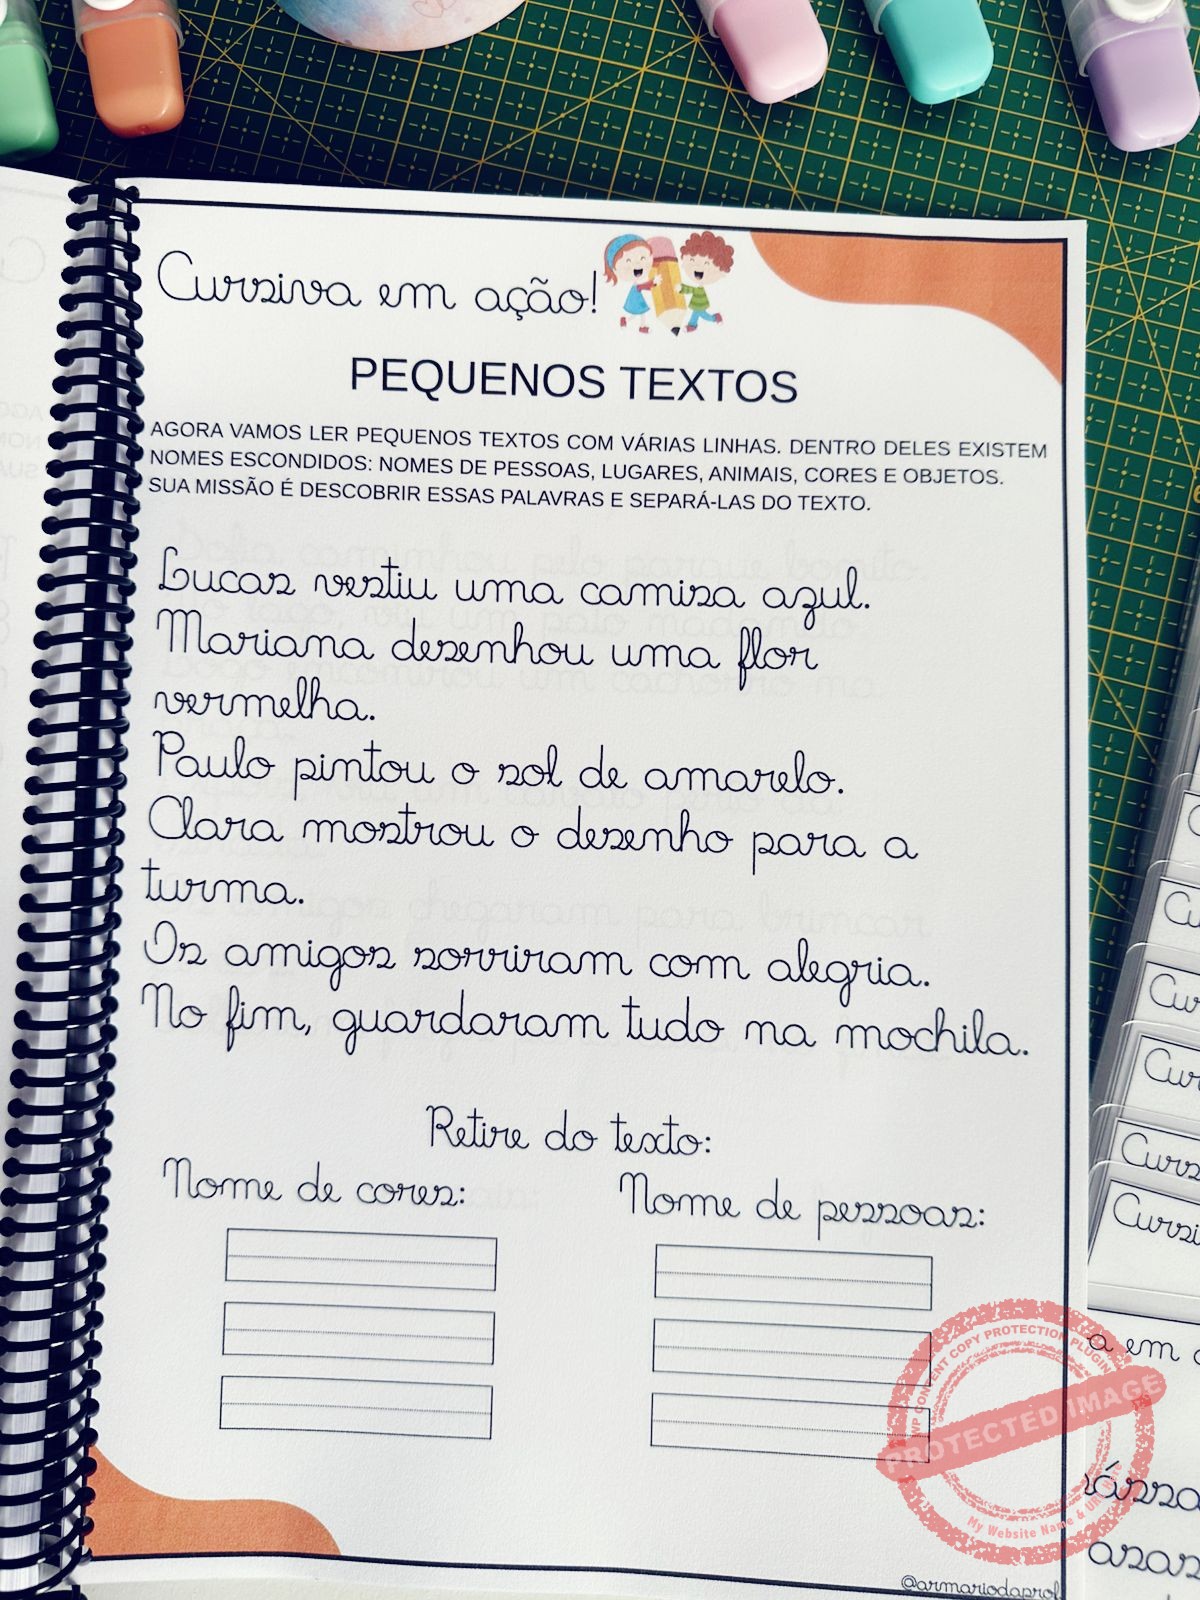 Cursiva em ação!
PEQUENOS TEXTOS
AGORA VAMOS LER PEQUENOS TEXTOS COM VÁRIAS LINHAS. DENTRO DELES EXISTEM
NOMES ESCONDIDOS: NOMES DE PESSOAS, LUGARES, ANIMAIS, CORES E OBJETOS.
SUA MISSÃO É DESCOBRIR ESSAS PALAVRAS E SEPARÁ-LAS DO TEXTO.
Lucas vestiu uma camisa azul.
Mariana desenhou uma flor
vermelha.
Paulo pintou o sol de amarelo.
Clara mostrou o desenho para a
turma.
Os amigos sorriram com alegria.
No fim, guardaram tudo na mochila.
Retire do texto:
Nome de cores:
Nome de pessoas:
WP CONTENT COPY PROTECTION PLUGIN
PROTECTED IMAGE
My Website Name &
a em
@armariodaprof